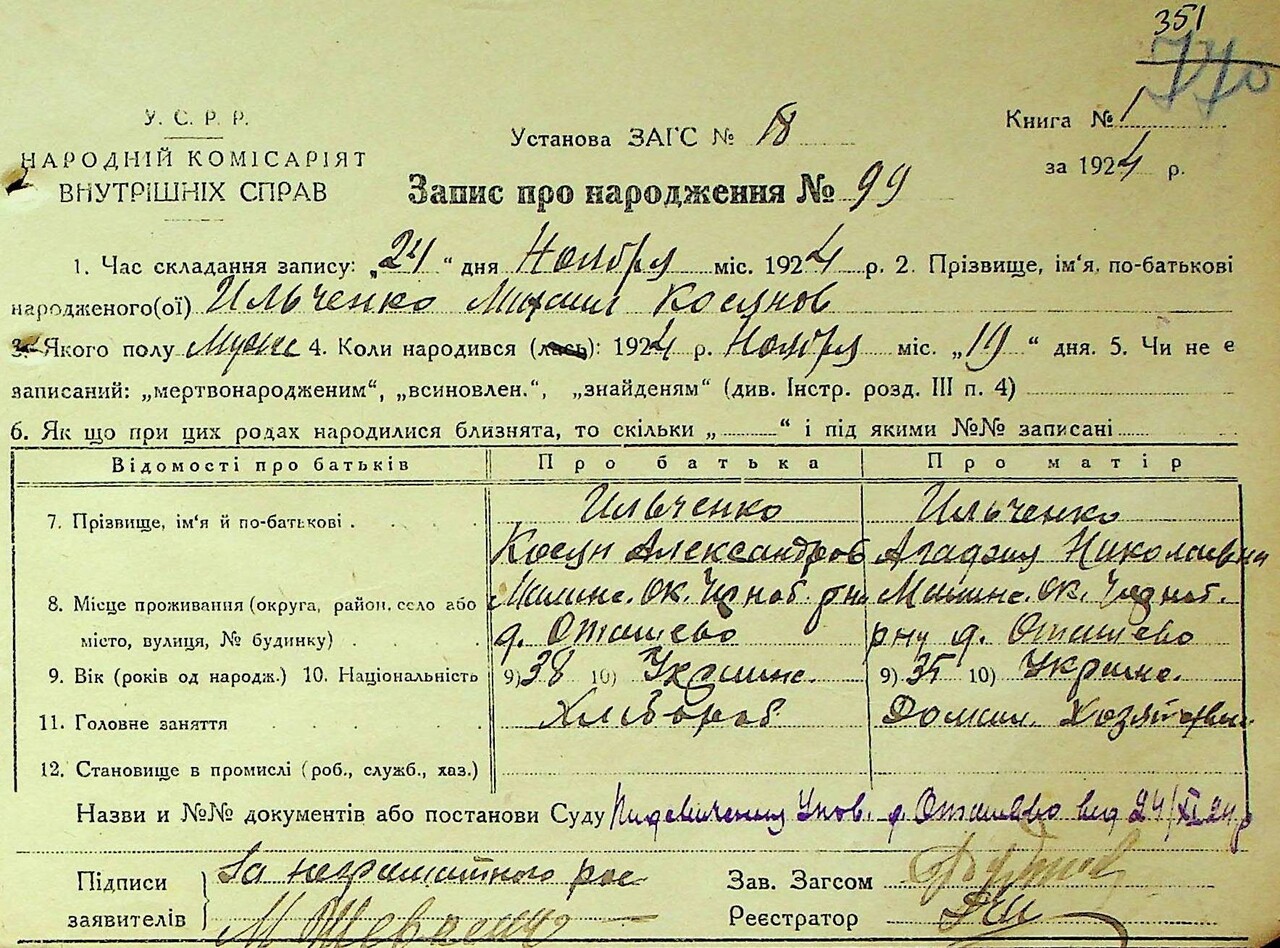 351
770
У. С. Р. Р.
НАРОДНІЙ КОМІСАРІЯТ
ВНУТРІШНІХ СПРАВ
Установа ЗАГС № 18
Книга № 1
за 1924 р.
Запис про народження № 99
1. Час складання запису: „24“ дня Ноября міс. 1924 р. 2. Прізвище, ім'я, по-батькові
народженого(ої) Ильченко Михаил Косянов
3. Якого полу мужс 4. Коли народився (лась): 1924 р. Ноября міс. „19“ дня. 5. Чи не є
записаний: „мертвонародженим“, „всиновлен.“, „знайденям“ (див. Інстр. розд. III п. 4)
6. Як що при цих родах народилися близнята, то скільки „ “ і під якими №№ записані
Відомості про батьків Про батька Про матір
7. Прізвище, ім'я й по-батькові Ильченко Ильченко
Косян Александров Агафия Николаевна
8. Місце проживання (округа, район, село або Малинс. ок. Чрноб. рну Малинс. ок. Чрноб.
місто, вулиця, № будинку) д. Оташево рну д. Оташево
9. Вік (років од народж.) 10. Національність 9) 38 10) Украинс. 9) 35 10) Украинс.
11. Головне заняття Хлібороб Домаш. Хозяйством
12. Становище в промислі (роб., служб., хаз.)
Назви и №№ документів або постанови Суду Упов. д. Оташево від 24/XI 24 р
Підписи За неграмотного рос
заявителів М Шевченко
Зав. Загсом
Реєстратор